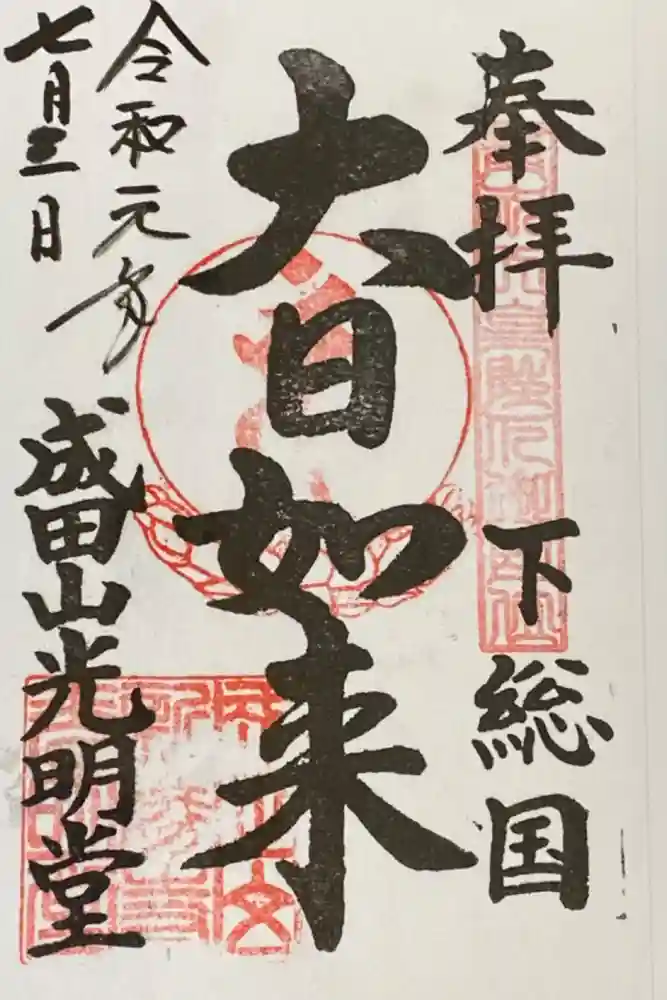 奉拝 下総国
大日如来
令和元年
七月三日
成田山光明堂